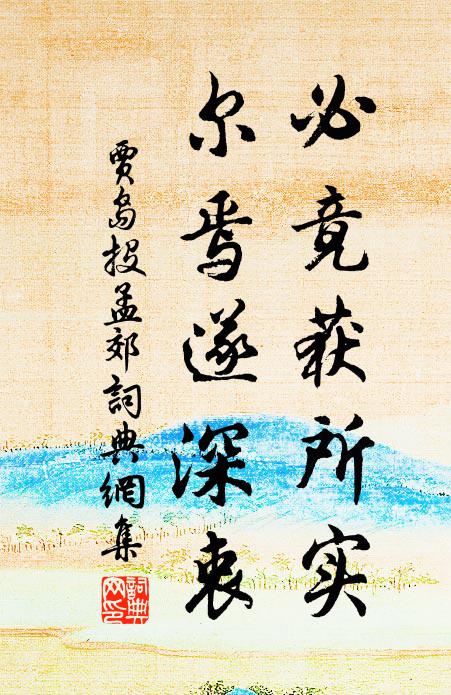 必竟获所实
尔焉遂深衷
賈島投孟郊詞典網集
詞典網印